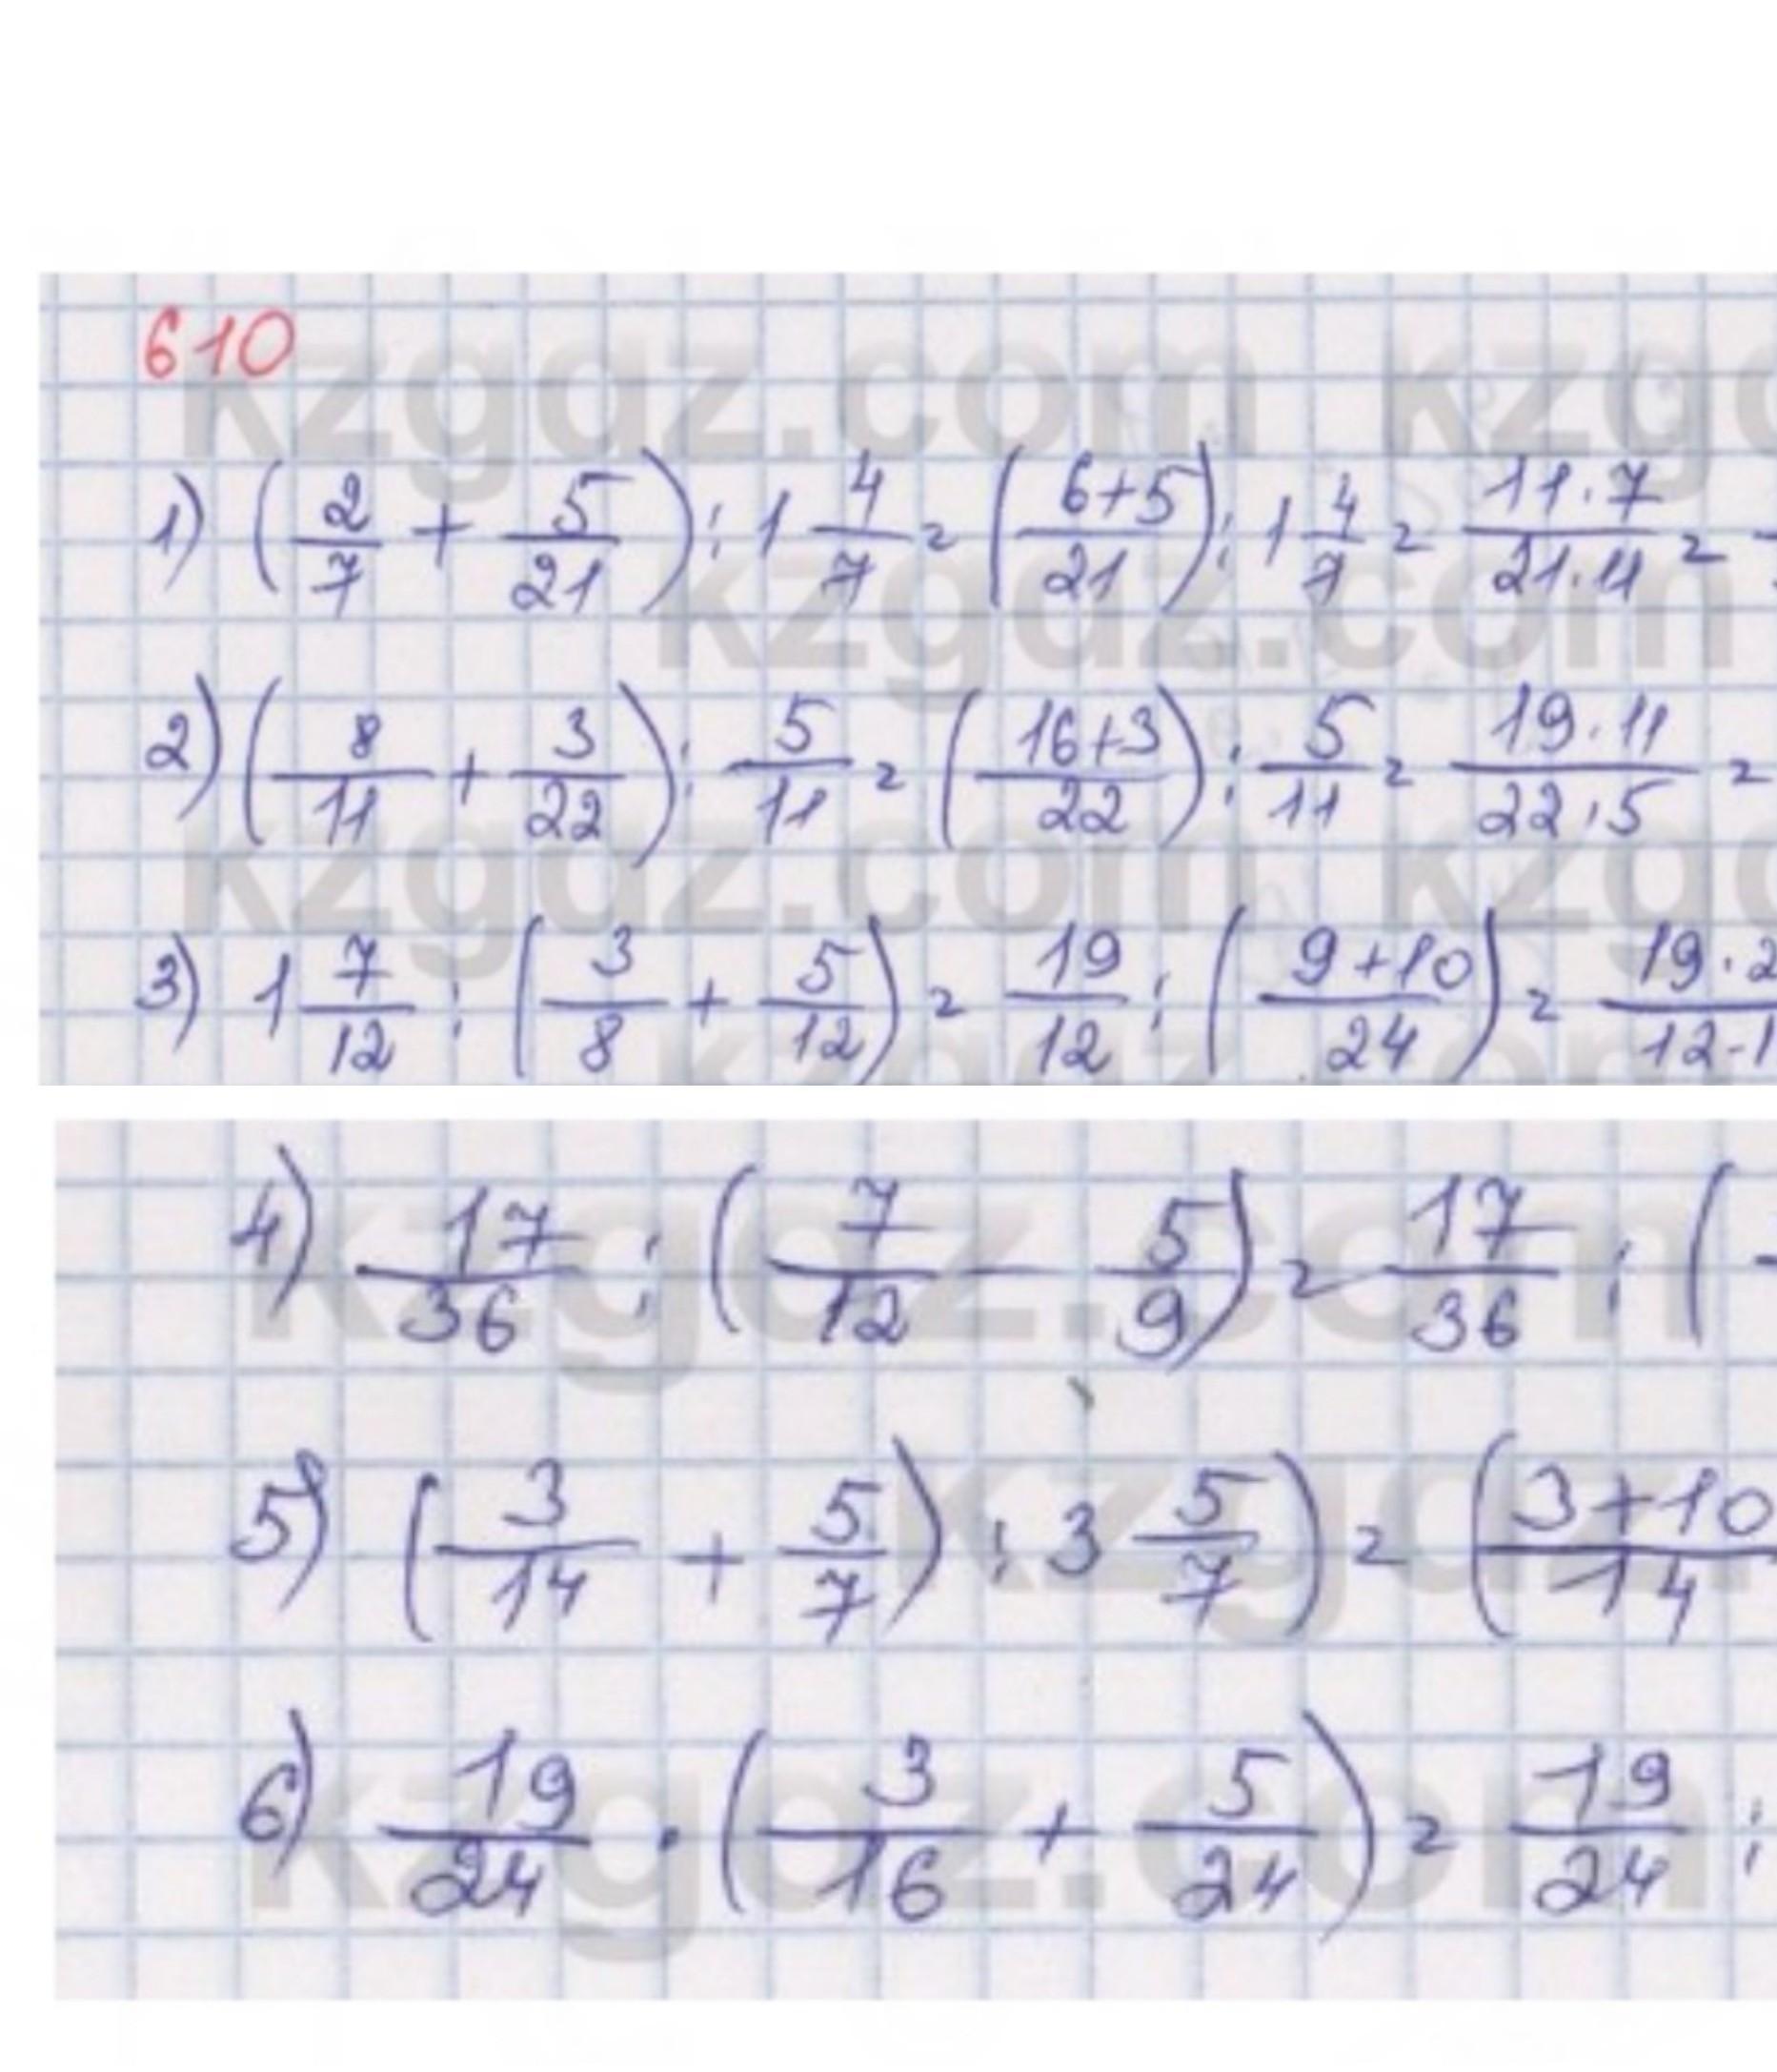 610
1) (2/7 + 5/21) : 1 4/7 = (6+5/21) : 1 4/7 = 11·7/21·11 =
2) (8/11 + 3/22) : 5/11 = (16+3/22) : 5/11 = 19·11/22·5 =
3) 1 7/12 : (3/8 + 5/12) = 19/12 : (9+10/24) = 19·2/12·1
4) 17/36 : (7/12 - 5/9) = 17/36 : (
5) (3/14 + 5/7) : 3 5/7) = (3+10/14
6) 19/24 · (3/16 + 5/24) = 19/24 :
kzgdz.com